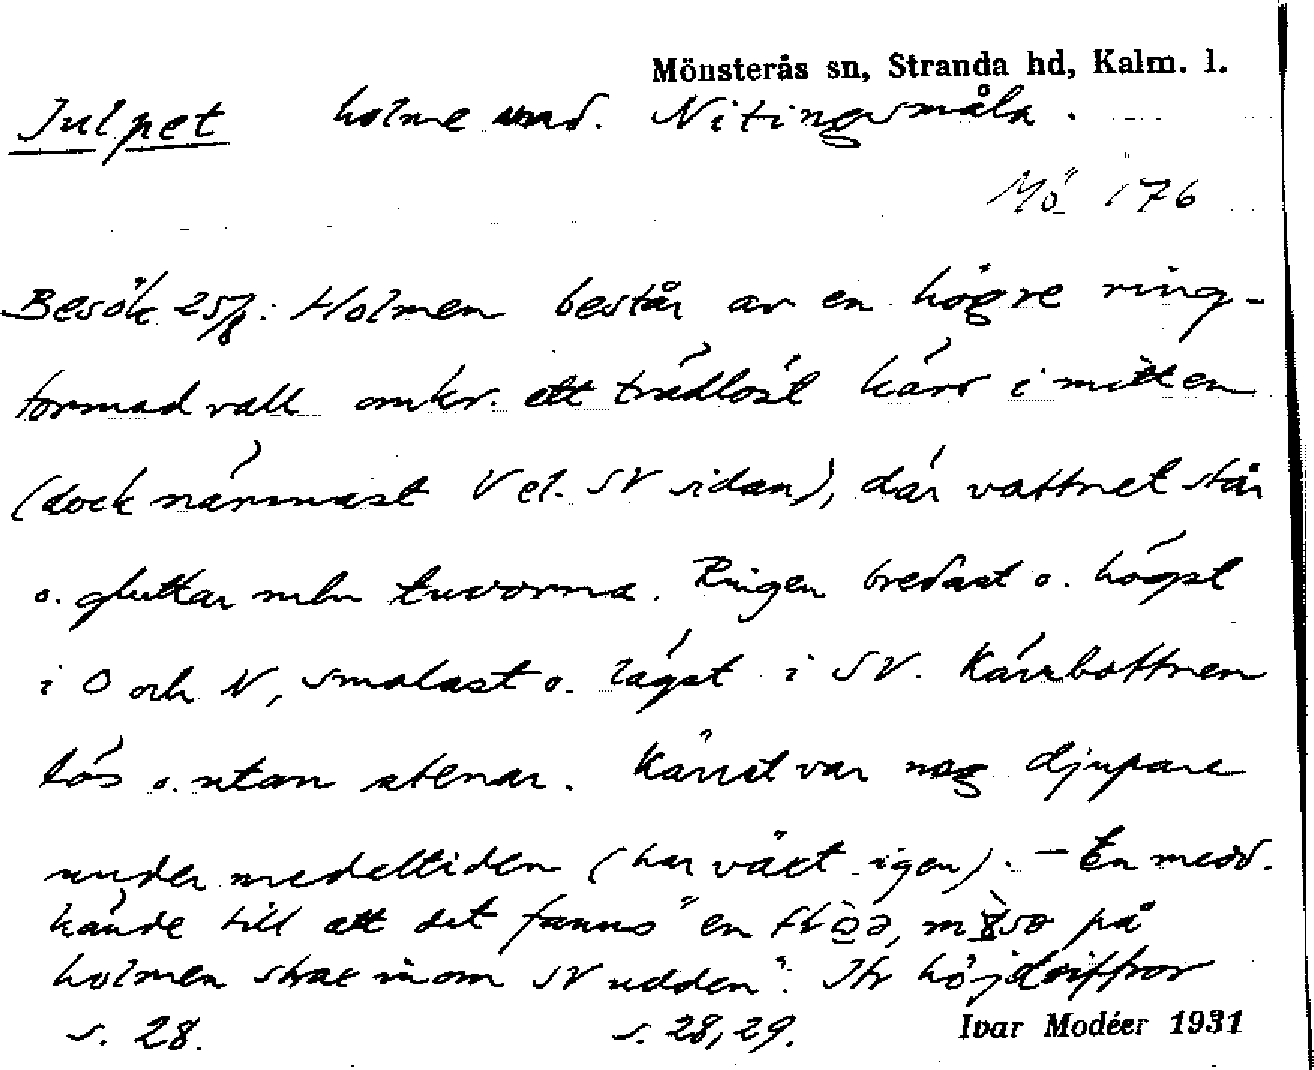 Mönsterås sn, Stranda hd, Kalm. l.
Julpet holme und. Nitingsmåla.
Mö 176
Besök 25/8: Holmen består av en högre ring-
formad vall omkr. ett trädlöst kärr i mitten
(dock närmast V el. SV sidan), där vattnet står
o. gluttar mln tuvorna. Ringen bredast o. högst
i O och N, smalast o. lägst i SV. Kärrbottnen
lös o. utan stenar. Kärret var nog djupare
under medeltiden (har växt igen). – En medd.
kände till att det fanns "en på
holmen strax inom SV udden". Jfr höjdsiffror
s. 28. s. 28, 29. Ivar Modéer 1931